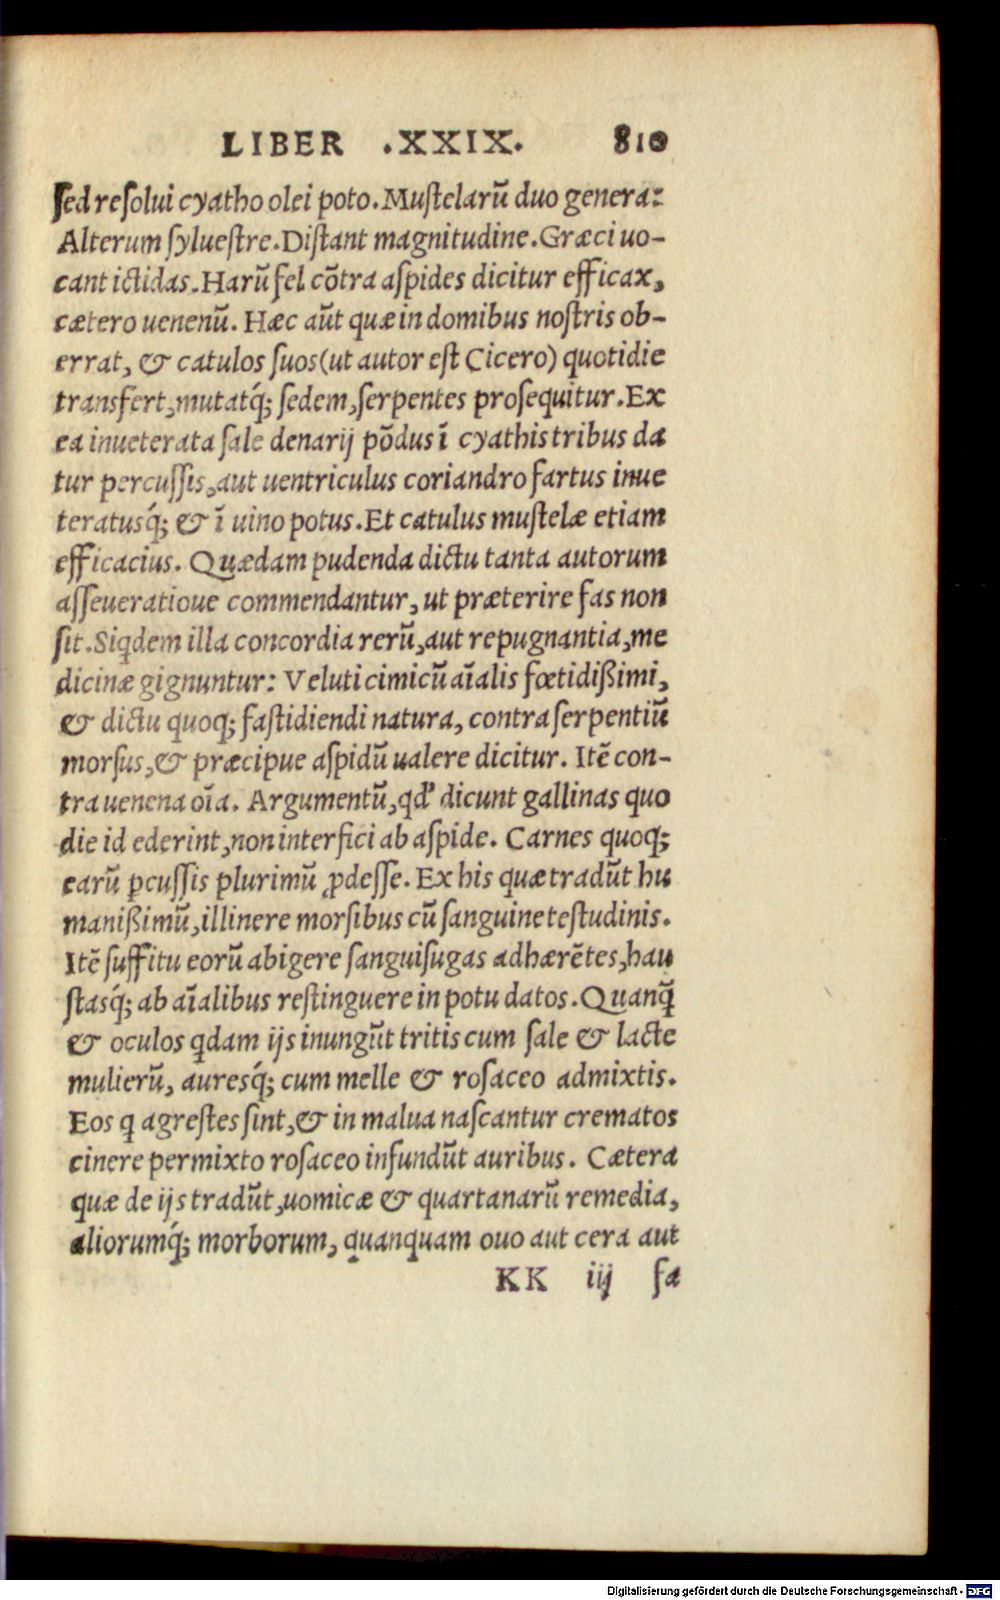 LIBER .XXIX. 810
ſed reſolui cyatho olei poto. Muſtelarũ duo genera:
Alterum ſylueſtre. Diſtant magnitudine. Græci uo-
cant ictidas. Harũ fel cõtra aſpides dicitur efficax,
cætero uenenũ. Hæc aũt quæ in domibus noſtris ob-
errat, & catulos ſuos (ut autor eſt Cicero) quotidie
transfert, mutatq́; ſedem, ſerpentes proſequitur. Ex
ea inueterata ſale denarij põdus ĩ cyathis tribus da
tur percuſſis, aut uentriculus coriandro fartus inue
teratusq́; & ĩ uino potus. Et catulus muſtelæ etiam
efficacius. Quædam pudenda dictu tanta autorum
aſſeueratioue commendantur, ut præterire fas non
ſit. Siq̇dem illa concordia rerũ, aut repugnantia, me
dicinæ gignuntur: Veluti cimicũ aĩalis fœtidißimi,
& dictu quoq; faſtidiendi natura, contra ſerpentiũ
morſus, & præcipue aſpidũ ualere dicitur. Itẽ con-
tra uenena oĩa. Argumentũ, qd' dicunt gallinas quo
die id ederint, non interfici ab aſpide. Carnes quoq;
earũ ꝑcuſſis plurimũ ꝓdeſſe. Ex his quæ tradũt hu
manißimũ, illinere morſibus cũ ſanguine teſtudinis.
Itẽ ſuffitu eorũ abigere ſanguiſugas adhærẽtes, hau
ſtasq́; ab aĩalibus reſtinguere in potu datos. Quanq̃
& oculos q̇dam ijs inungũt tritis cum ſale & lacte
mulierũ, auresq́; cum melle & roſaceo admixtis.
Eos q̇ agreſtes ſint, & in malua naſcantur crematos
cinere permixto roſaceo infundũt auribus. Cætera
quæ de ijs tradũt, uomicæ & quartanarũ remedia,
aliorumq́; morborum, quanquam ouo aut cera aut
KK iij ſa
Digitalisierung gefördert durch die Deutsche Forschungsgemeinschaft - DFG